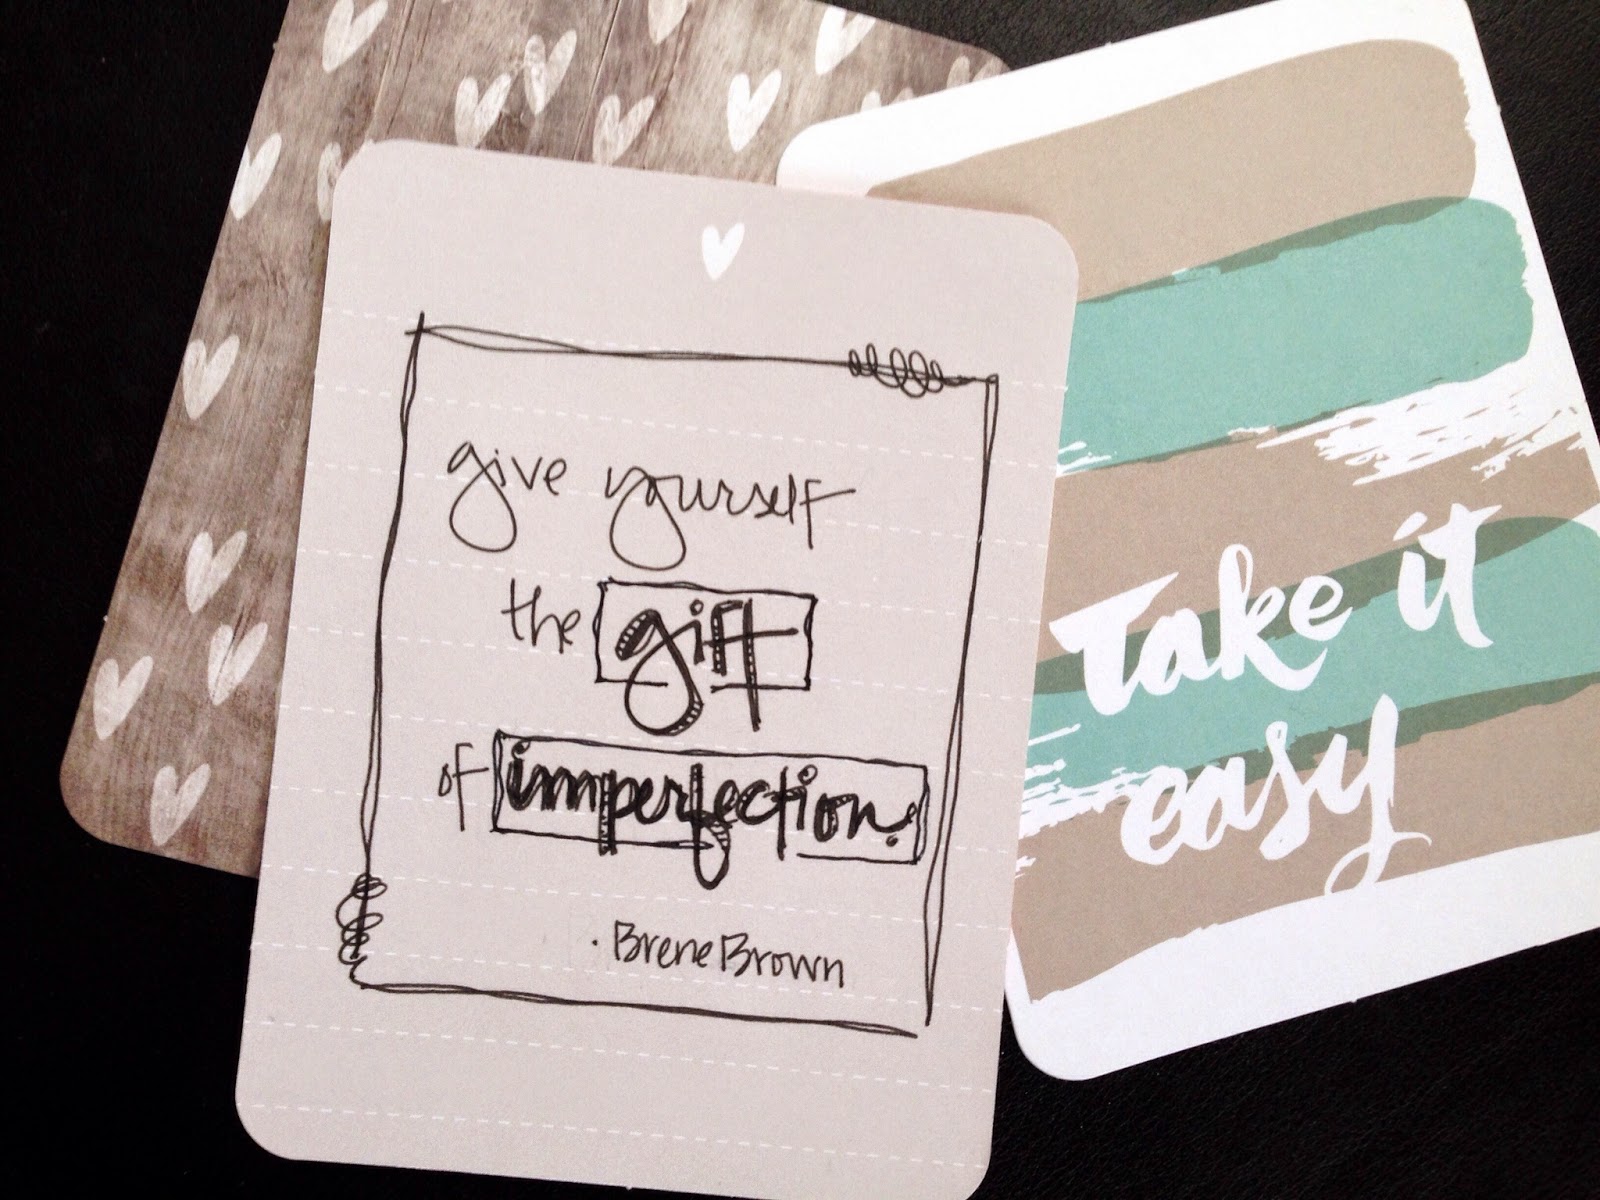 give yourself
the gift
of imperfection.
. Brene Brown
Take it
easy